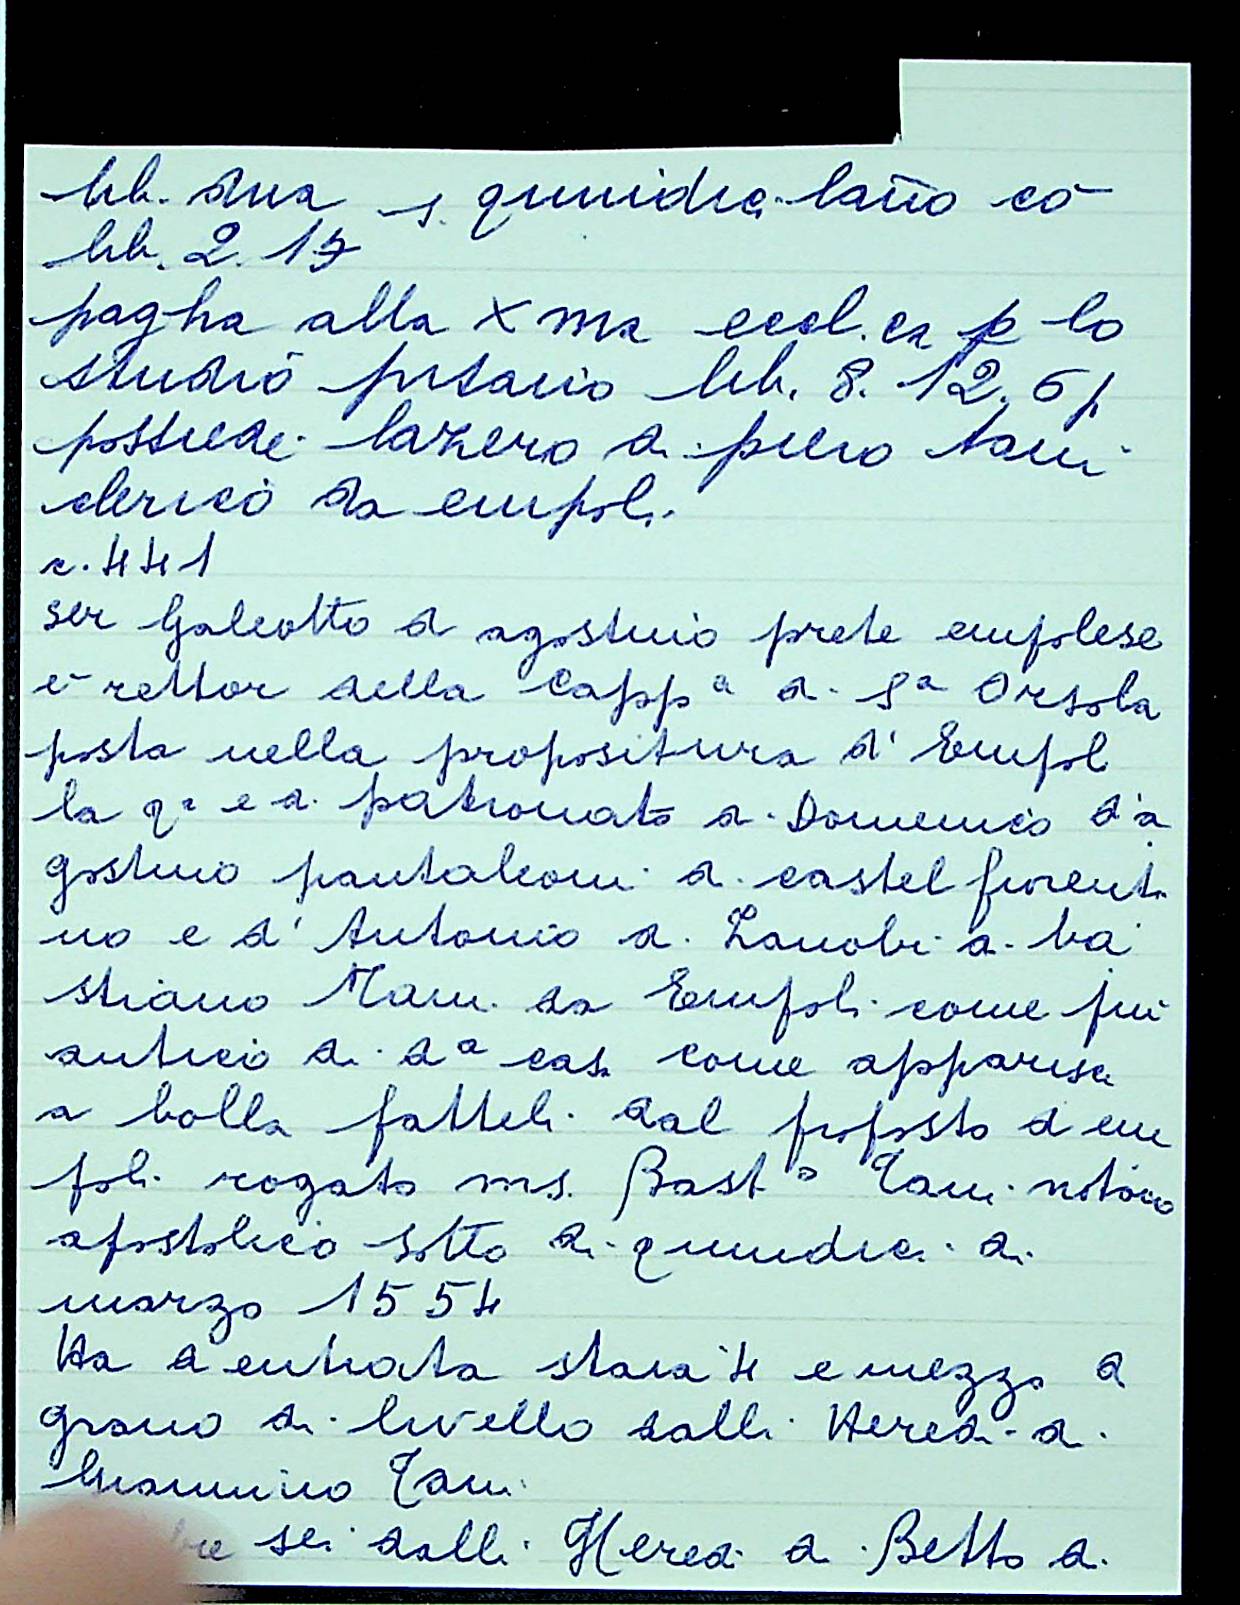 lib. dua s. quindici lano có
lib. 2. 15
pagha alla Xma eccl.ca p lo
studiò pisano lib. 8. 12. 6 p.
possiede lazero di piero tani
clericò da empoli.
c. 441
ser Galeotto d agostino prete empolese
è rettor della Capp.a di S.a Orsola
posta nella propositura d' Empol
la q.e e di patronato di Domenico d'a
gostino pantaleoni di castel fiorent
no e d' Antonio di Zanobi di ba
stiano Tani da Empoli come più
anticò di d.a cas. come apparisce
a bolla fatteli dal proposto d em
poli rogato ms. Bast.o Tani notaio
apostolico sotto di quindici di
marzo 1554
Ha d entrata staia 4 e mezzo d
grano di livello dalli Heredi di
Giannino Tani
sei dalli Heredi di Betto di